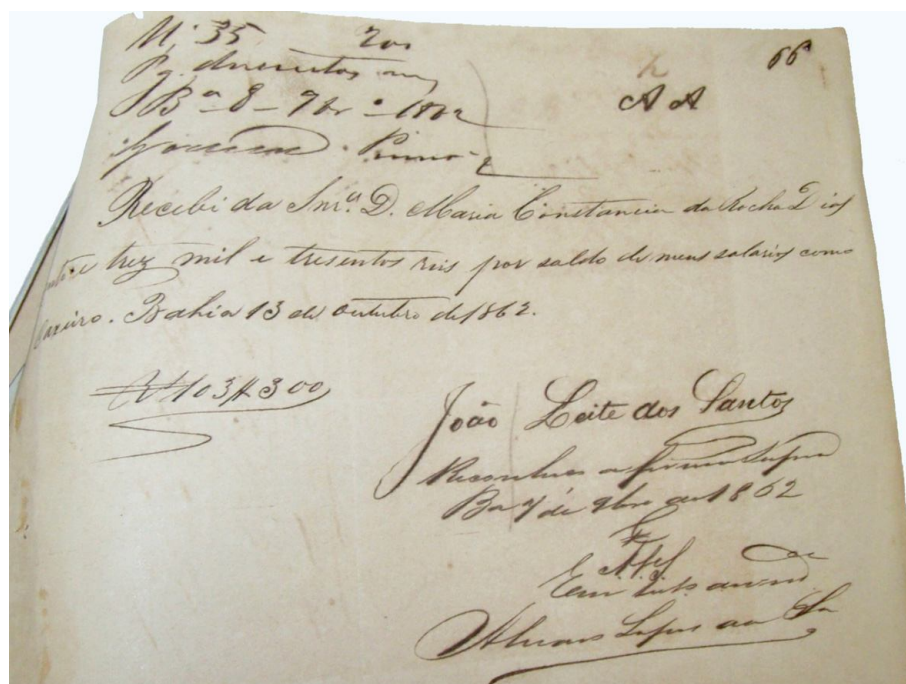 N. 35 200
Pg. duzentos reis
Ba 8 - 9br.o 1862
66
Recebi da Snr.a D. Maria Constancia da Rocha Dias
cento e trez mil e tresentos reis por saldo de meus salarios como
Caxeiro. Bahia 13 de outubro de 1862.
103$300
João Leite dos Santos
Reconheço a firma supra
Ba 7 de 9bro de 1862
Em test.
Alvaro Lopes da Sa